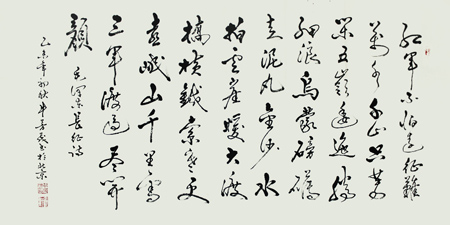 红军不怕远征难
万水千山只等
闲五岭逶迤腾
细浪乌蒙磅礴
走泥丸金沙水
拍云崖暖大渡
桥横铁索寒更
喜岷山千里雪
三军过后尽开
颜 毛泽东长征诗
乙未年初秋 书于北京